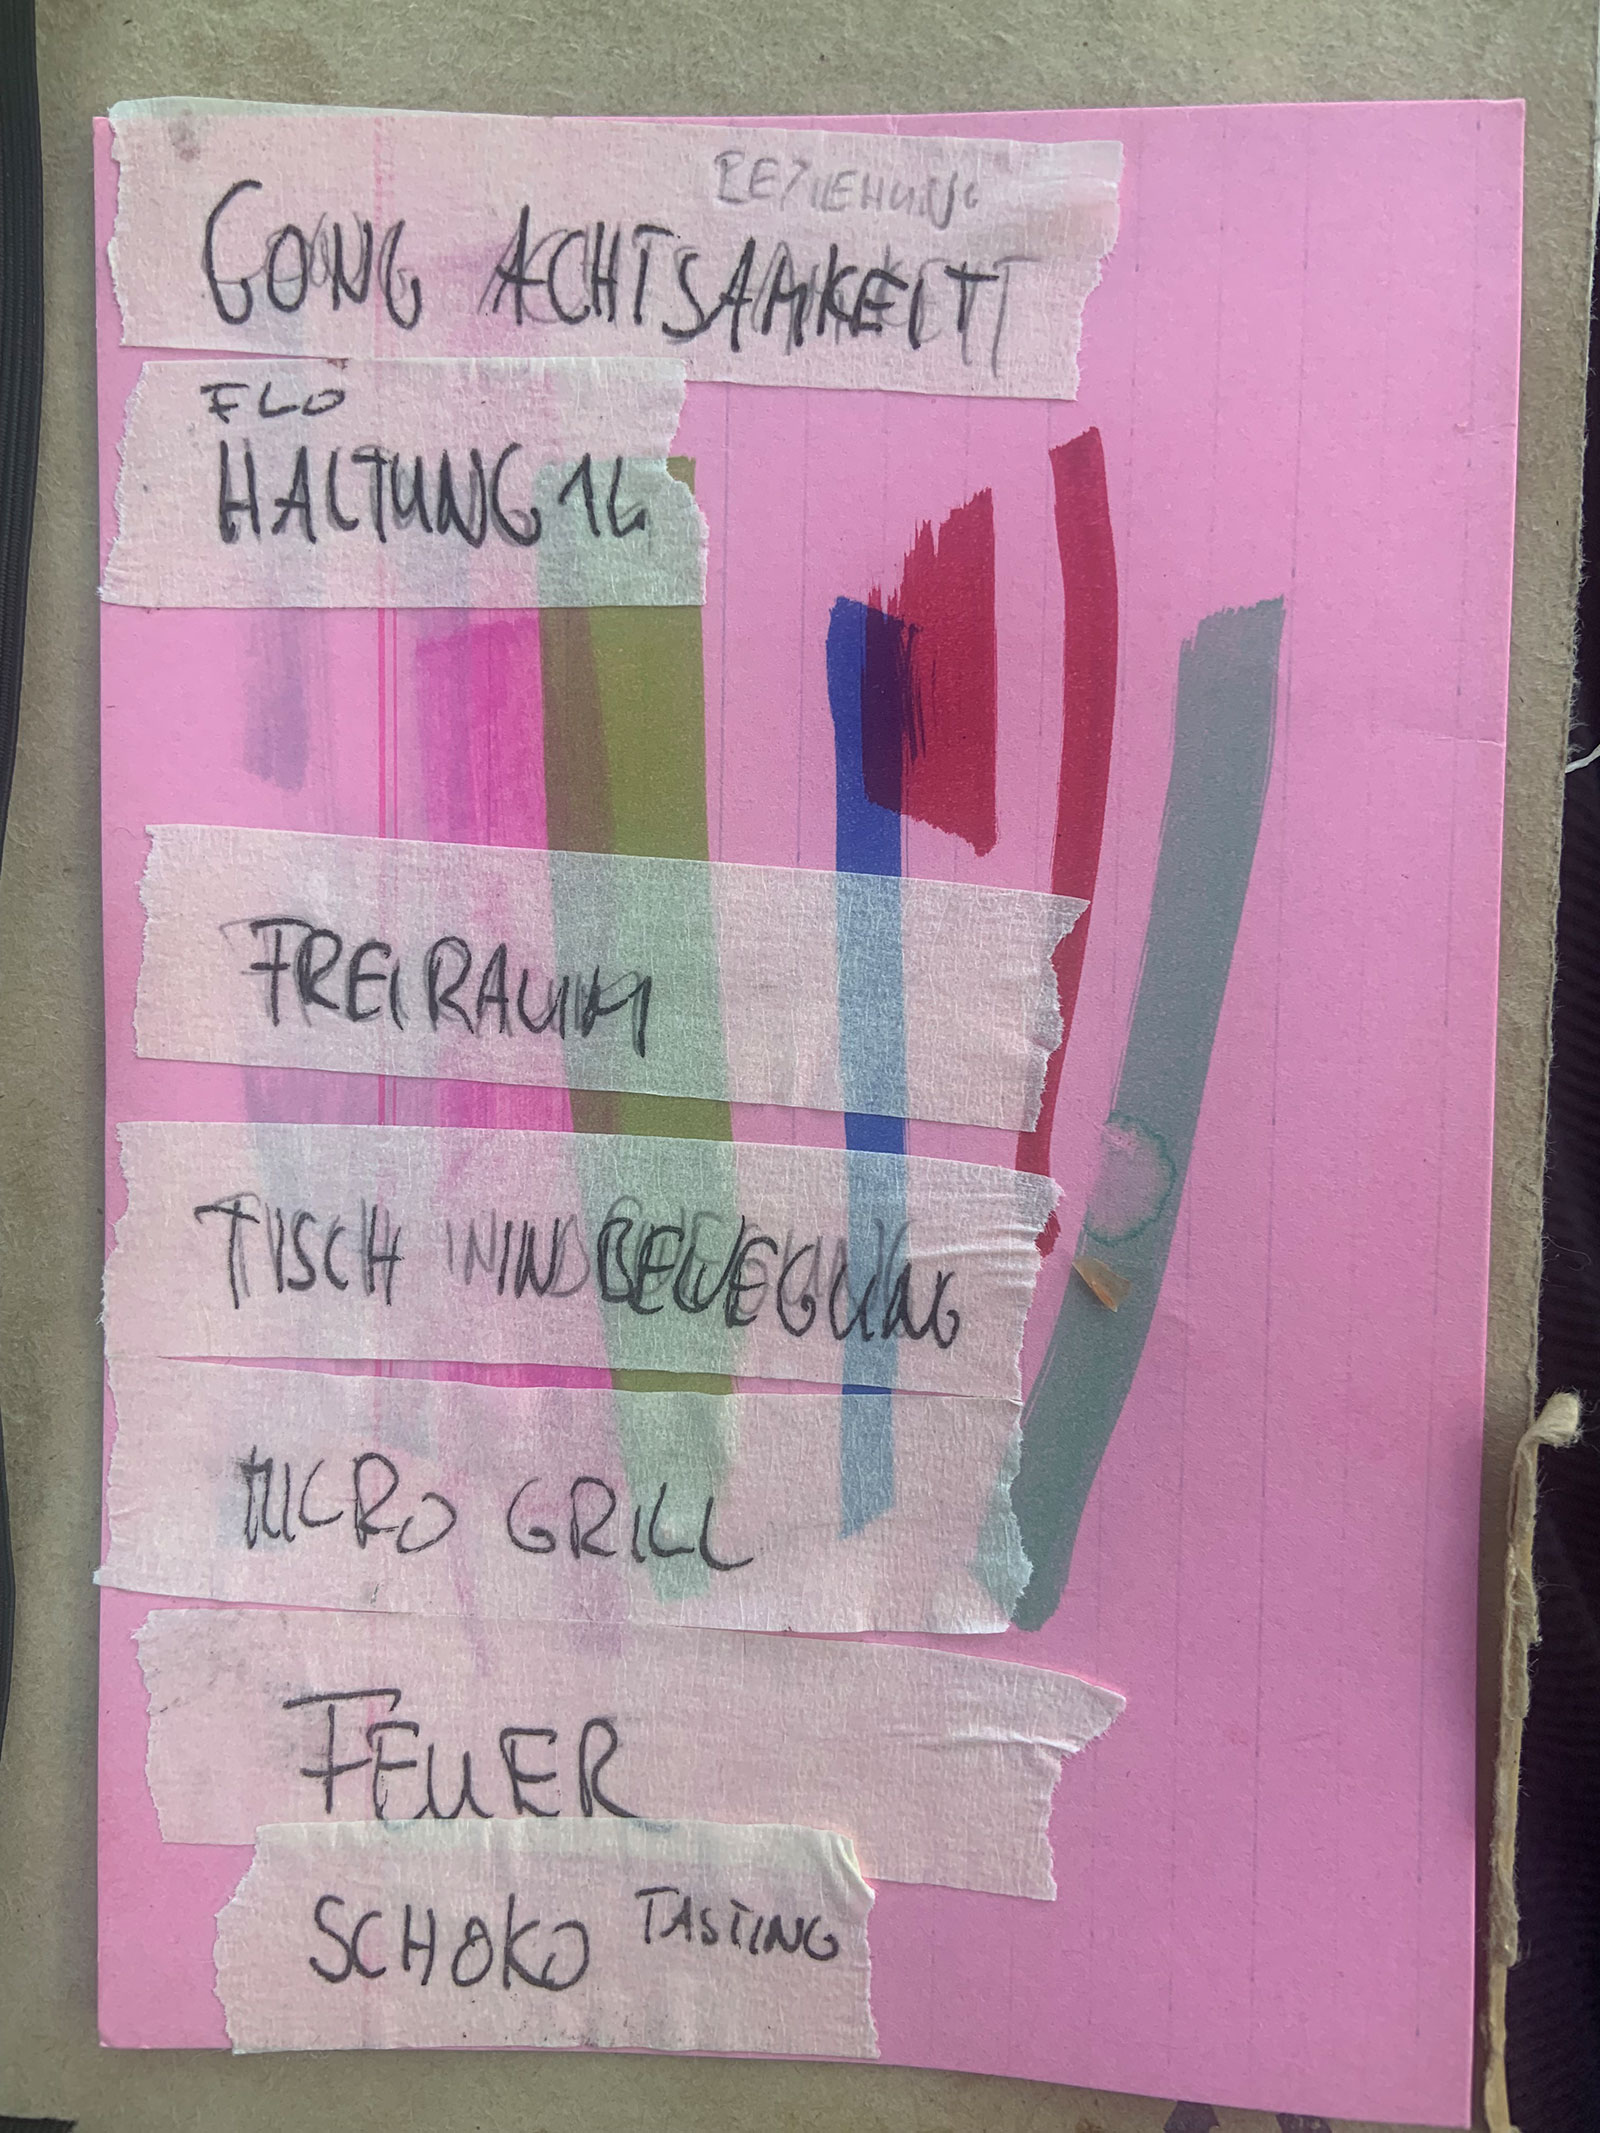 BEZIEHUNG
GONG ACHTSAMKEIT
FLO
HALTUNG 1L
FREIRAUM
TISCH IN BEWEGUNG
MICRO GRILL
FEUER
SCHOKO TASTING